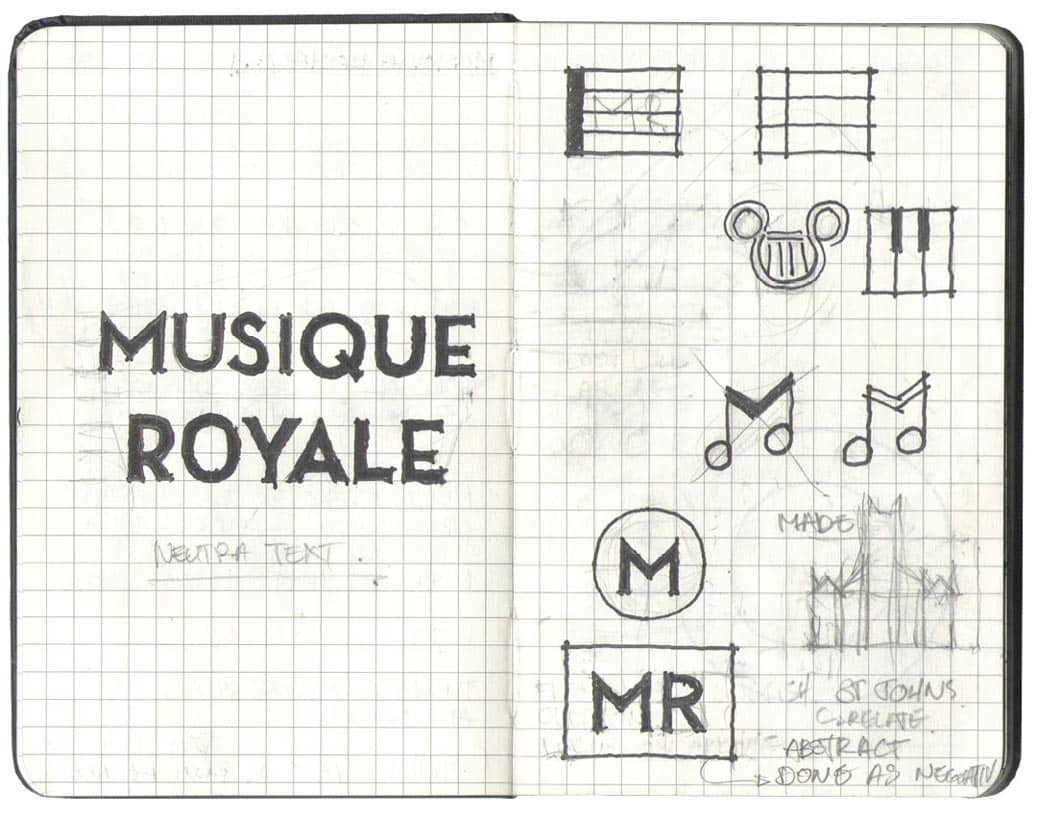 MUSIQUE
ROYALE
NEUTRA TEXT.
MR
M
MADE
MR
ST JOHNS
ABSTRACT
DONE AS NEGATIV